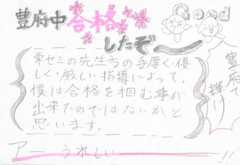 豊府中合格
したぞ〜
栄セミの先生方の手厚く優
しく、厳しい指導によって、
僕は合格を掴む事が
出来たのではないかと
思います。
アー うれしい